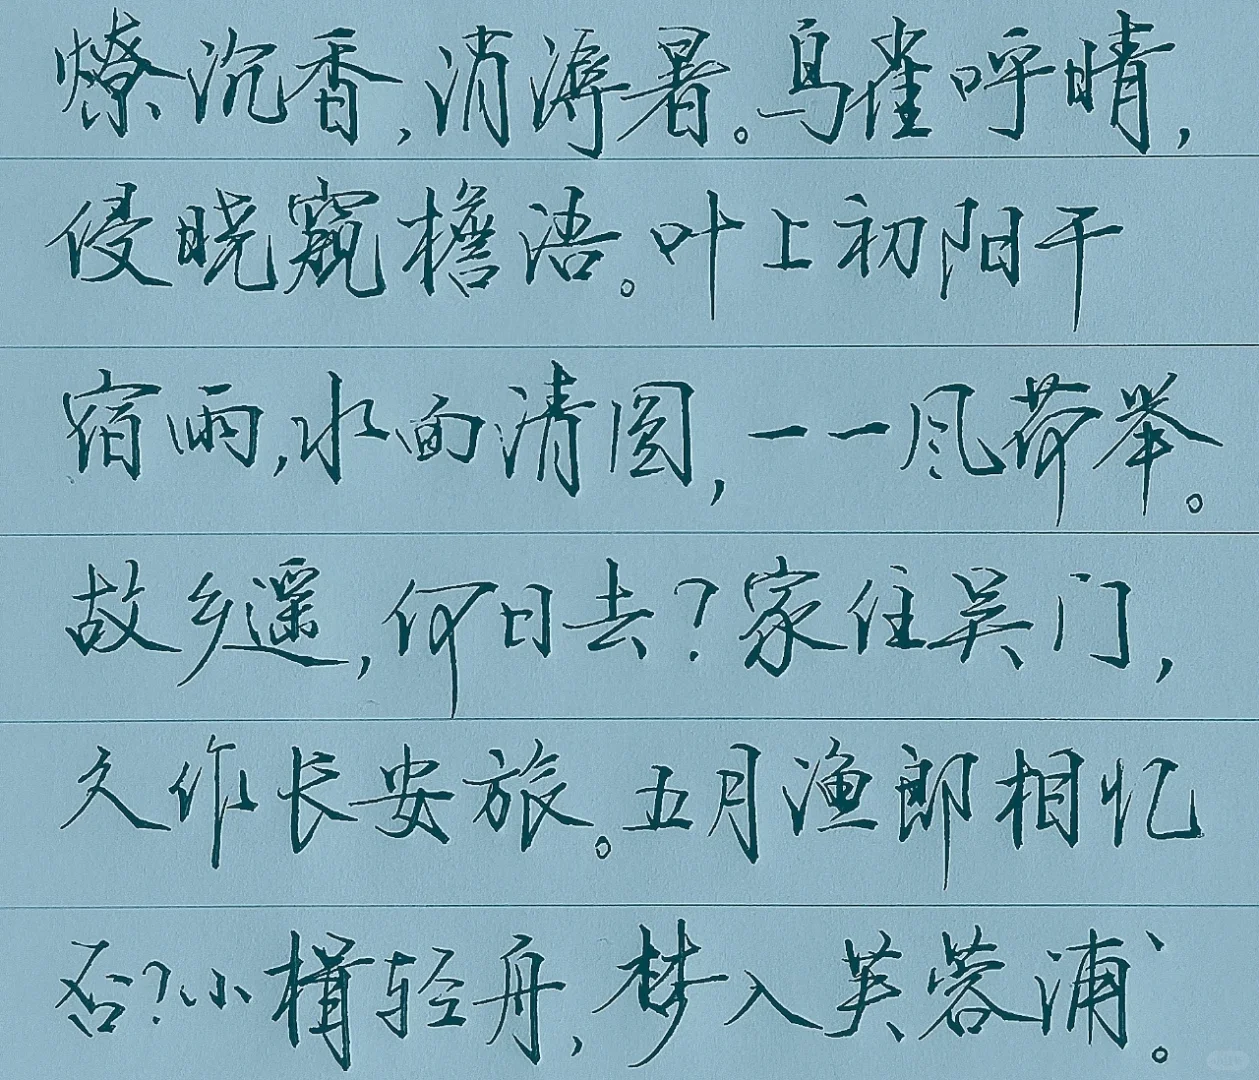 燎沉香，消溽暑。鸟雀呼晴，
侵晓窥檐语。叶上初阳干
宿雨，水面清圆，一一风荷举。
故乡遥，何日去？家住吴门，
久作长安旅。五月渔郎相忆
否？小楫轻舟，梦入芙蓉浦。